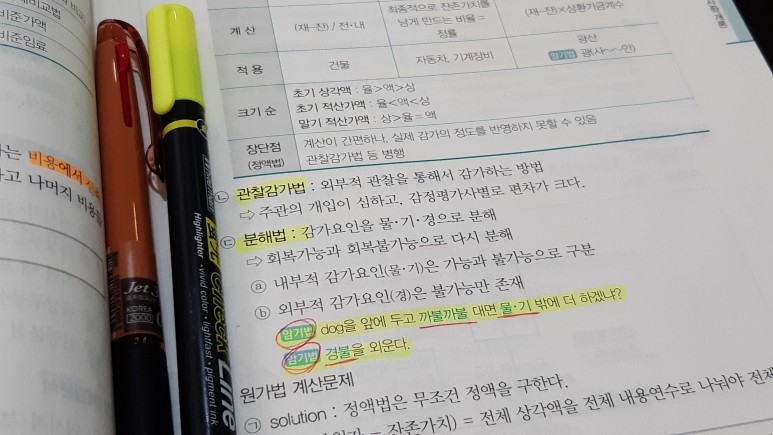 비준가액
비준임료
계 산
(재-잔) / 전·내
최종적으로 잔존가치를
넘게 만드는 비율 =
정률
(재-잔)×상환기금계수
적 용
건물
자동차, 기계장비
광산
암기법 광(사~~인)
크기 순
초기 상각액 : 율>액>상
초기 적산가액 : 율<액<상
말기 적산가액 : 상>율=액
장단점
(정액법)
계산이 간편하나, 실제 감가의 정도를 반영하지 못할 수 있음
관찰감가법 등 병행
는 비용에서
고 나머지 비용
㉡ 관찰감가법 : 외부적 관찰을 통해서 감가하는 방법
⇨ 주관의 개입이 심하고, 감정평가사별로 편차가 크다.
㉢ 분해법 : 감가요인을 물·기·경으로 분해
⇨ 회복가능과 회복불가능으로 다시 분해
ⓐ 내부적 감가요인(물·기)은 가능과 불가능으로 구분
ⓑ 외부적 감가요인(경)은 불가능만 존재
암기법 dog을 앞에 두고 까불까불 대면 물·기 밖에 더 하겠냐?
암기법 경불을 외운다.
원가법 계산문제
㉠ solution : 정액법은 무조건 정액을 구한다.
잔존가치) = 전체 상각액을 전체 내용연수로 나눠야 전체
Jet
KOREA
Highlighter · vivid color · lightfast · pigment ink
Line